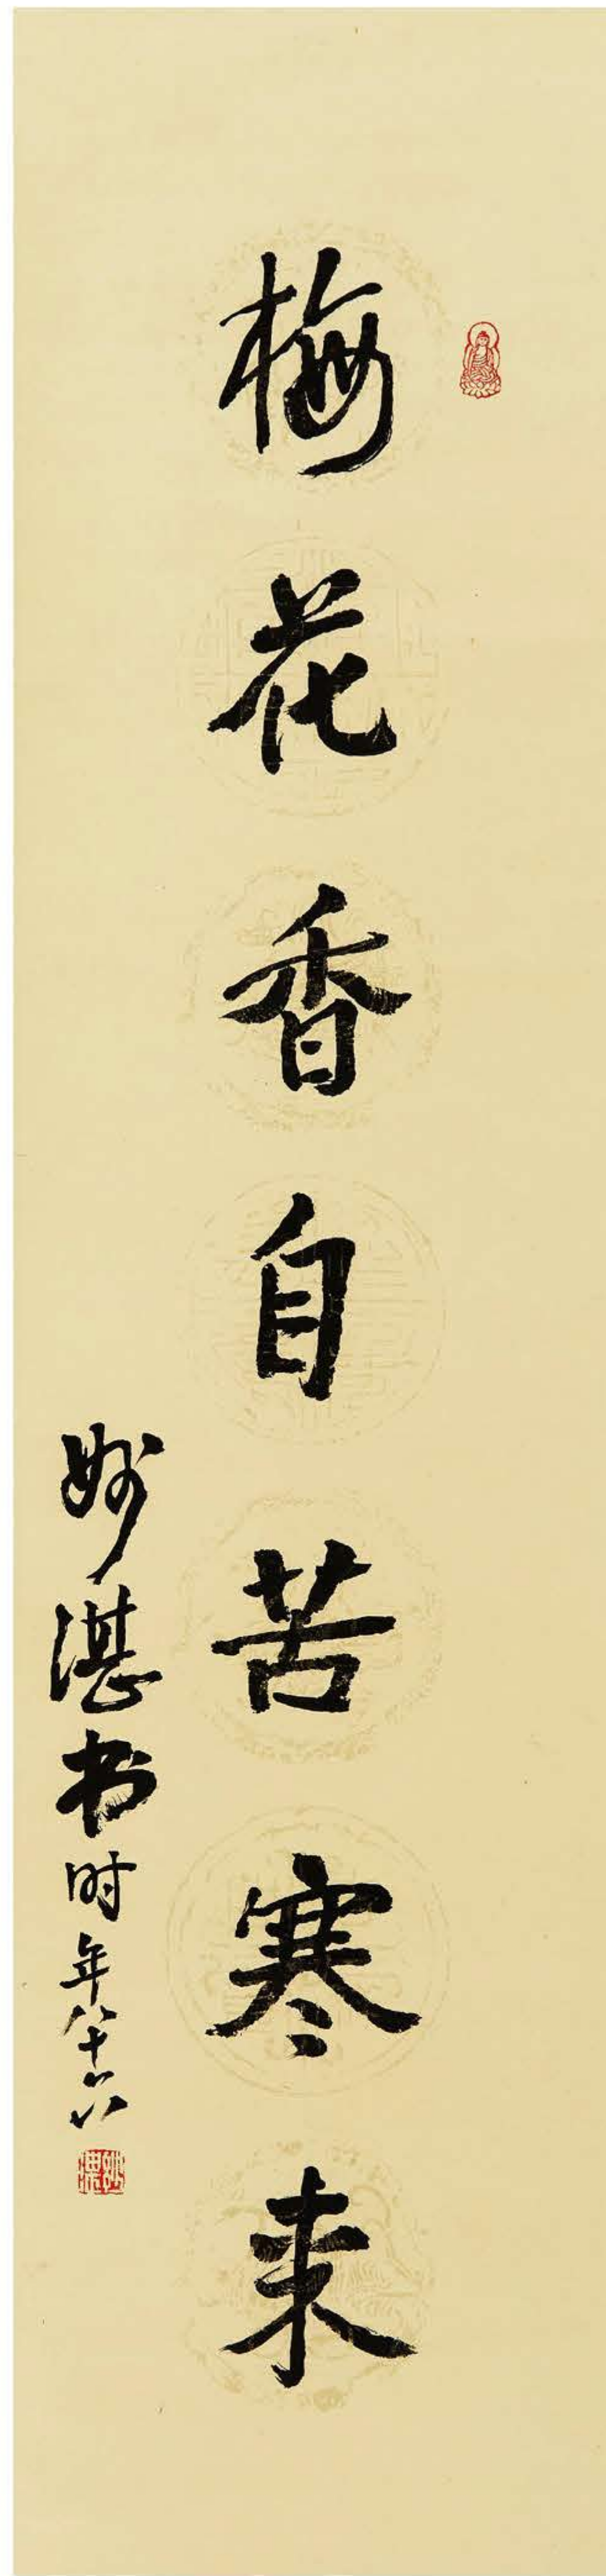 梅花香自苦寒来
妙湛书时年八十六
妙湛